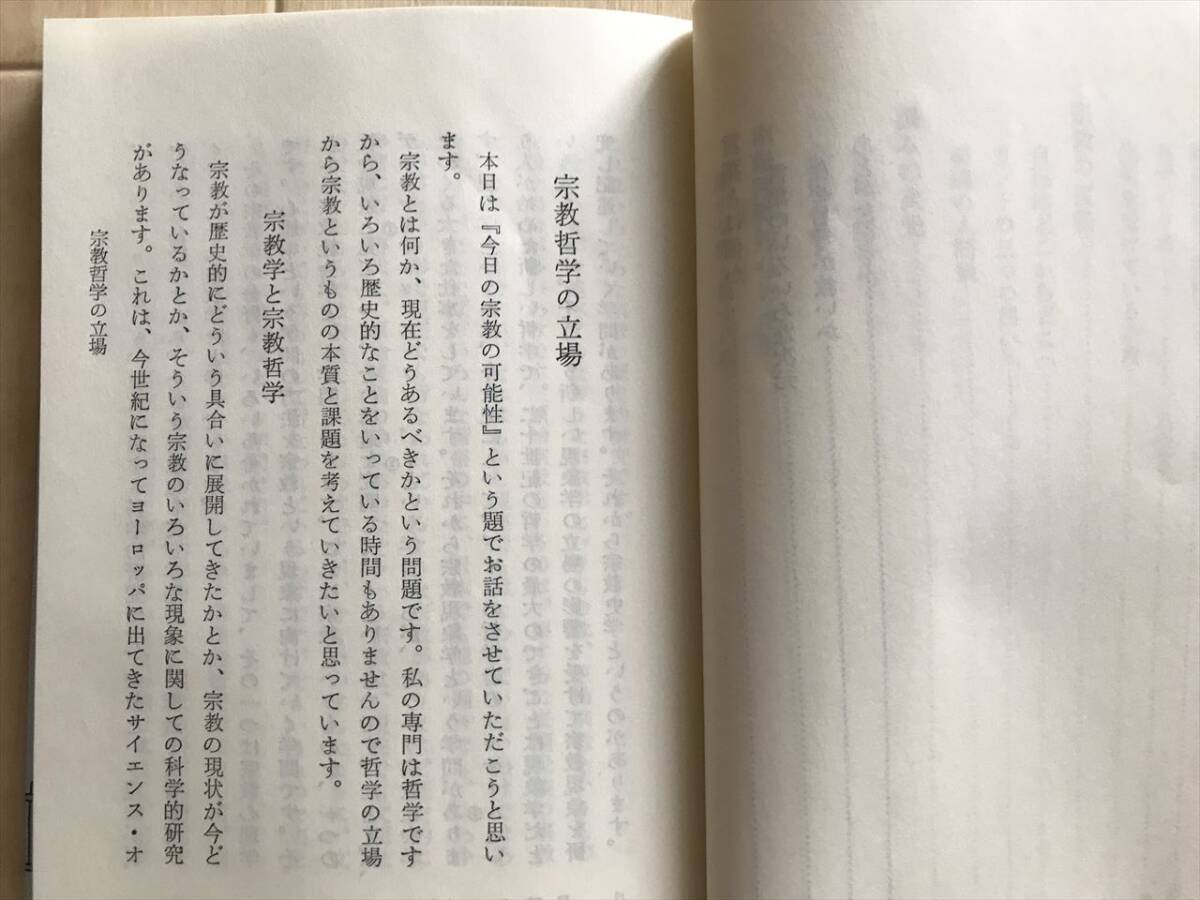 宗教哲学の立場
本日は『今日の宗教の可能性』という題でお話をさせていただこうと思い
ます。
宗教とは何か、現在どうあるべきかという問題です。私の専門は哲学です
から、いろいろ歴史的なことをいっている時間もありませんので哲学の立場
から宗教というものの本質と課題を考えていきたいと思っています。
宗教学と宗教哲学
宗教が歴史的にどういう具合いに展開してきたかとか、宗教の現状が今ど
うなっているかとか、そういう宗教のいろいろな現象に関しての科学的研究
があります。これは、今世紀になってヨーロッパに出てきたサイエンス・オ
宗教哲学の立場